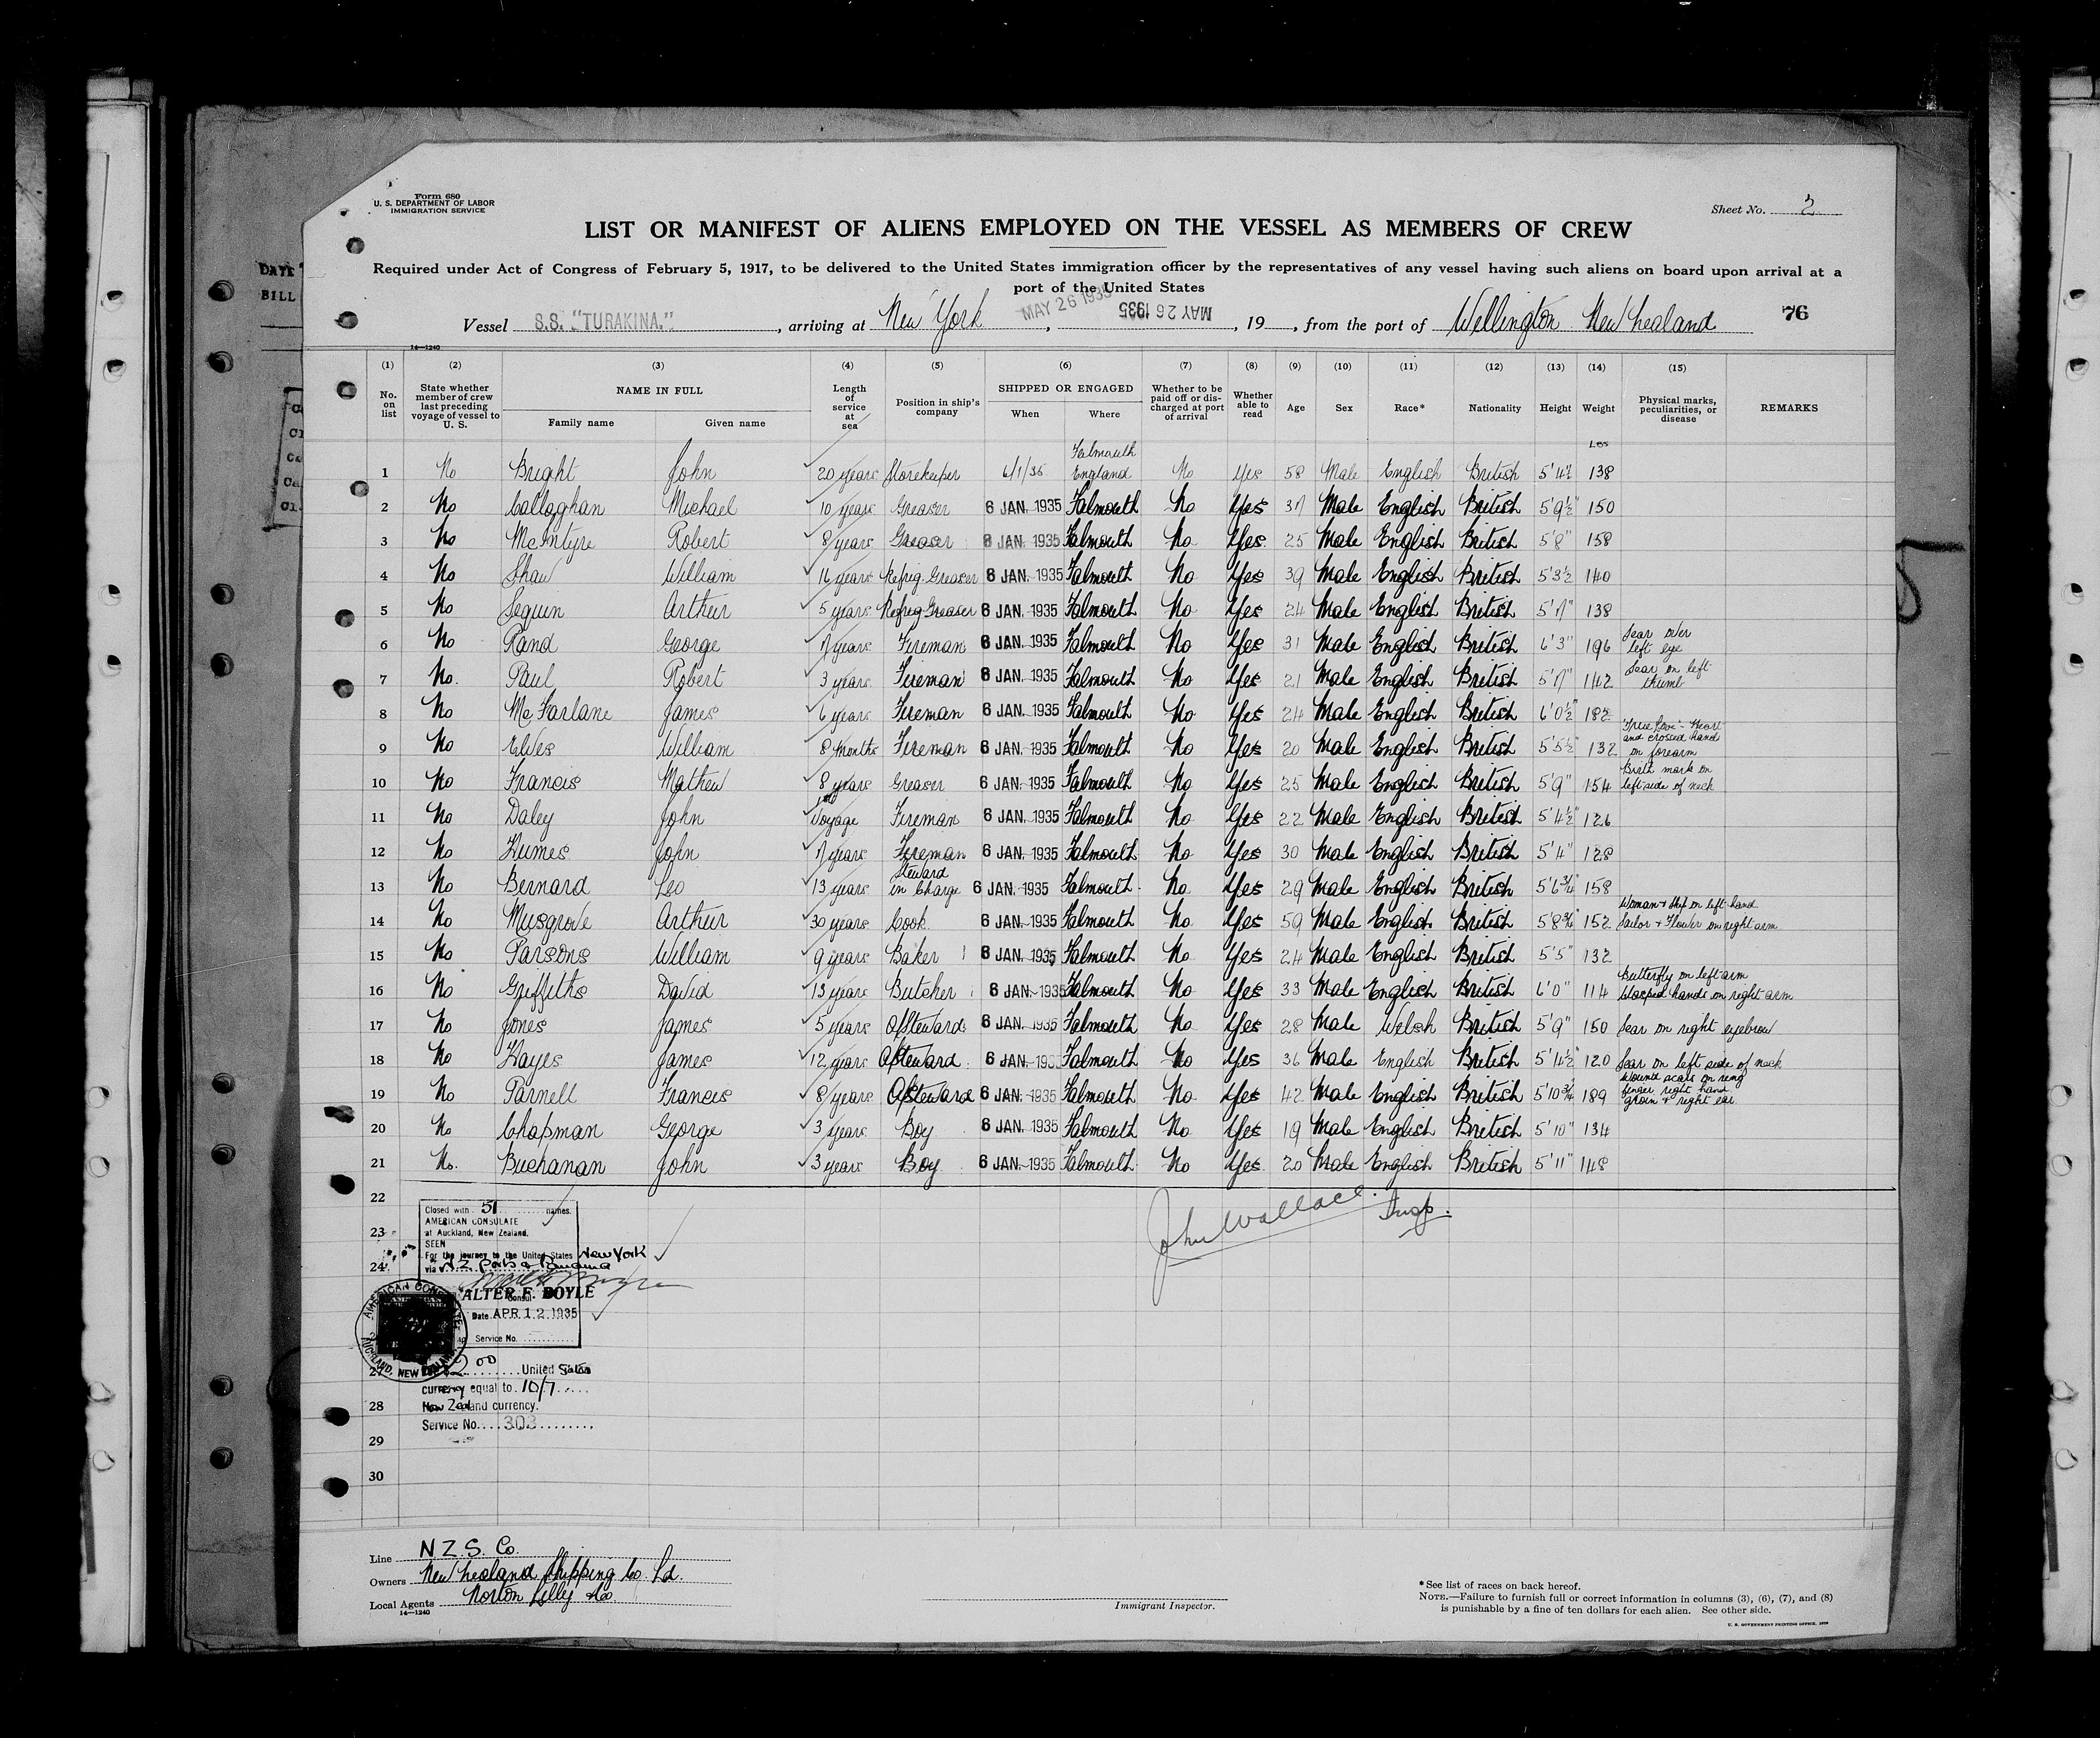 Form 680
U. S. DEPARTMENT OF LABOR
IMMIGRATION SERVICE
Sheet No. 2
LIST OR MANIFEST OF ALIENS EMPLOYED ON THE VESSEL AS MEMBERS OF CREW
Required under Act of Congress of February 5, 1917, to be delivered to the United States immigration officer by the representatives of any vessel having such aliens on board upon arrival at a
port of the United States
Vessel S.S. "TURAKINA." , arriving at New York MAY 26 1935 , MAY 26 1935 , 19 , from the port of Wellington New Zealand 76
14—1240
(1) (2) (3) (4) (5) (6) (7) (8) (9) (10) (11) (12) (13) (14) (15)
No. on list State whether member of crew last preceding voyage of vessel to U. S. NAME IN FULL Family name Given name Length of service at sea Position in ship's company SHIPPED OR ENGAGED When Where Whether to be paid off or discharged at port of arrival Whether able to read Age Sex Race* Nationality Height Weight Physical marks, peculiarities, or disease REMARKS
Lbs
1 No Bright John 20 years Storekeeper 6/1/35 Falmouth England No Yes 58 Male English British 5'4½ 138
2 No Callaghan Michael 10 years Greaser 6 JAN. 1935 Falmouth No Yes 37 Male English British 5'9½" 150
3 No McIntyre Robert 8 years Greaser 6 JAN. 1935 Falmouth No Yes 25 Male English British 5'8" 158
4 No Shaw William 14 years Refrig. Greaser 6 JAN. 1935 Falmouth No Yes 39 Male English British 5'3½ 140
5 No Seguin Arthur 5 years Refrig Greaser 6 JAN. 1935 Falmouth No Yes 24 Male English British 5'7" 138
6 No Rand George 7 years Fireman 6 JAN. 1935 Falmouth No Yes 31 Male English British 6'3" 196 Scar over left eye
7 No. Paul Robert 3 years Fireman 6 JAN. 1935 Falmouth No Yes 21 Male English British 5'7" 142 Scar on left thumb
8 No McFarlane James 6 years Fireman 6 JAN. 1935 Falmouth No Yes 24 Male English British 6'0½" 182
9 No Elves William 8 months Fireman 6 JAN. 1935 Falmouth No Yes 20 Male English British 5'5½" 132 'True love' - Heart and crossed hands on forearm
10 No Francis Mathew 8 years Greaser 6 JAN. 1935 Falmouth No Yes 25 Male English British 5'9" 154 Birth mark on left side of neck
11 No Daley John Voyage Fireman 6 JAN. 1935 Falmouth No Yes 22 Male English British 5'4½" 126
12 No Humes John 7 years Fireman 6 JAN. 1935 Falmouth No Yes 30 Male English British 5'4" 128
13 No Bernard Leo 13 years Steward in Charge 6 JAN. 1935 Falmouth No Yes 29 Male English British 5'6¾" 158
14 No Musgrove Arthur 30 years Cook 6 JAN. 1935 Falmouth No Yes 59 Male English British 5'8¾" 152 Woman & Ship on left hand Sailor & Flower on right arm
15 No Parsons William 9 years Baker 6 JAN. 1935 Falmouth No Yes 24 Male English British 5'5" 132
16 No Griffiths David 13 years Butcher 6 JAN. 1935 Falmouth No Yes 33 Male English British 6'0" 114 Butterfly on left arm Clasped hands on right arm
17 No Jones James 5 years A/Steward 6 JAN. 1935 Falmouth No Yes 28 Male Welsh British 5'9" 150 Scar on right eyebrow
18 No Hayes James 12 years A/Steward 6 JAN. 193 Falmouth No Yes 36 Male English British 5'4½" 120 Scar on left side of neck
19 No Parnell Francis 8 years A/Steward 6 JAN. 1935 Falmouth No Yes 42 Male English British 5'10¾" 189 Wound scars on ring finger right hand groin & right ear
20 No Chapman George 3 years Boy 6 JAN. 1935 Falmouth No Yes 19 Male English British 5'10" 134
21 No. Buchanan John 3 years Boy 6 JAN. 1935 Falmouth No Yes 20 Male English British 5'11" 148
22
23
24
27
28
29
30
John Wallace. Insp.
Closed with 51 names.
AMERICAN CONSULATE
at Auckland, New Zealand.
SEEN
For the journey to the United States New York
via N Z ports & Panama
ALTER F. BOYLE
Consul
Date APR 12 1935
Service No.
AMERICAN CONSULATE
AUCKLAND, NEW ZEALAND
2.00 United States
currency equal to 10/7
New Zealand currency.
Service No. 303
Line N Z. S. Co.
Owners New Zealand Shipping Co. Ld.
Local Agents Norton Lilly & Co.
14—1240
Immigrant Inspector.
* See list of races on back hereof.
NOTE.—Failure to furnish full or correct information in columns (3), (6), (7), and (8)
is punishable by a fine of ten dollars for each alien. See other side.
U. S. GOVERNMENT PRINTING OFFICE.
DATE
BILL